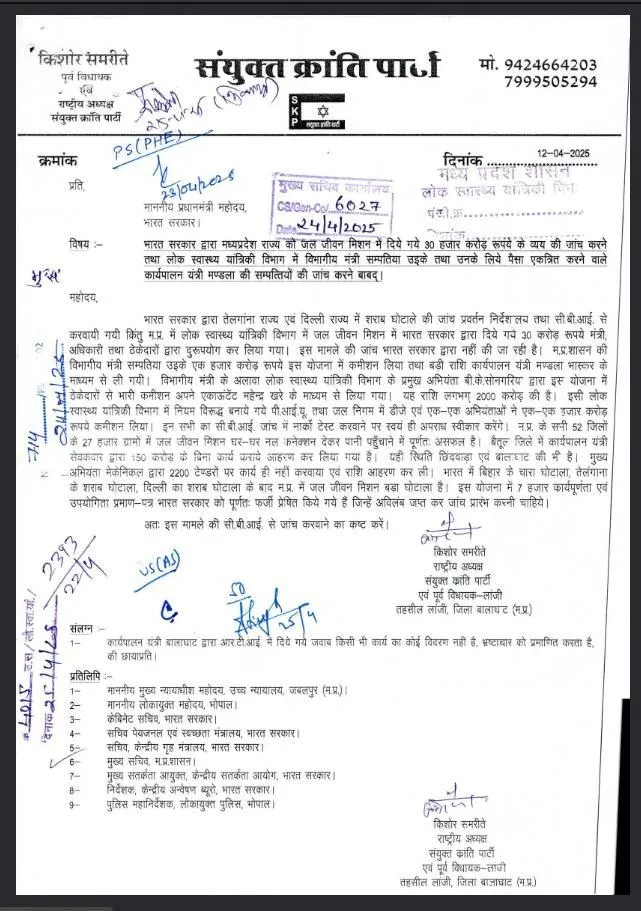 किशोर समरीते
पूर्व विधायक
एवं
राष्ट्रीय अध्यक्ष
संयुक्त क्रांति पार्टी
संयुक्त क्रांति पार्टी
SKP
संयुक्त क्रांति पार्टी
मो. 9424664203
7999505294
क्रमांक
PS(PHE)
23/04/2025
दिनांक 12-04-2025
मध्य प्रदेश शासन
लोक स्वास्थ्य यांत्रिकी विभाग
पंजी.क्र.
दिनांक
मुख्य सचिव कार्यालय
CS/Gen-Co/ 6027
Date 24/4/2025
प्रति,
माननीय प्रधानमंत्री महोदय,
भारत सरकार।
विषय :- भारत सरकार द्वारा मध्यप्रदेश राज्य को जल जीवन मिशन में दिये गये 30 हजार करोड़ रूपये के व्यय की जांच करने
तथा लोक स्वास्थ्य यांत्रिकी विभाग में विभागीय मंत्री सम्पतिया उइके तथा उनके लिये पैसा एकत्रित करने वाले
कार्यपालन यंत्री मण्डला की सम्पत्तियों की जांच करने बाबद्।
महोदय,
भारत सरकार द्वारा तेलगांना राज्य एवं दिल्ली राज्य में शराब घोटाले की जांच प्रवर्तन निर्देशालय तथा सी.बी.आई. से
करवायी गयी किंतु म.प्र. में लोक स्वास्थ्य यांत्रिकी विभाग में जल जीवन मिशन में भारत सरकार द्वारा दिये गये 30 करोड़ रूपये मंत्री,
अधिकारी तथा ठेकेदारों द्वारा दुरूपयोग कर लिया गया। इस मामले की जांच भारत सरकार द्वारा नहीं की जा रही है। म.प्र.शासन की
विभागीय मंत्री सम्पतया उइके एक हजार करोड़ रूपये इस योजना में कमीशन लिया तथा बडी राशि कार्यपालन यंत्री मण्डला भास्कर के
माध्यम से ली गयी। विभागीय मंत्री के अलावा लोक स्वास्थ्य यांत्रिकी विभाग के प्रमुख अभियंता बी.के.सोनगरिया द्वारा इस योजना में
ठेकेदारों से भारी कमीशन अपने एकाऊटेंट महेन्द्र खरे के माध्यम से लिया गया। यह राशि लगभग् 2000 करोड़ की है। इसी लोक
स्वास्थ्य यांत्रिकी विभाग में नियम विरूद्ध बनाये गये पी.आई.यू. तथा जल निगम में डीजे एवं एक–एक अभियंताओं ने एक–एक हजार करोड़
रूपये कमीशन लिया। इन सभी का सी.बी.आई. जांच में नार्को टेस्ट करवाने पर स्वयं ही अपराध स्वीकार करेंगे। म.प्र. के सनी 52 जिलों
के 27 हजार ग्रामों में जल जीवन मिशन घर–घर नल कनेक्शन देकर पानी पहुँचाने में पूर्णतः असफल है। बैतूल जिले में कार्यपालन यंत्री
सेवकवार द्वारा 150 करोड़ के बिना कार्य कराये आहरण कर लिया गया है। यही स्थिति छिंदवाड़ा एवं बालाघाट की भी है। मुख्य
अभियंता मेकेनिकल द्वारा 2200 टेण्डरों पर कार्य ही नहीं करवाया एवं राशि आहरण कर ली। भारत में बिहार के चारा घोटाला, तेलगांना
के शराब घोटाला, दिल्ली का शराब घोटाला के बाद म.प्र. में जल जीवन मिशन बड़ा घोटाला है। इस योजना में 7 हजार कार्यपूर्णता एवं
उपयोगिता प्रमाण–पत्र भारत सरकार को पूर्णतः फर्जी प्रेषित किये गये हैं जिन्हें अविलंब जप्त कर जांच प्रारंभ करनी चाहिये।
अतः इस मामले की सी.बी.आई. से जांच करवाने का कष्ट करें।
किशोर समरीते
राष्ट्रीय अध्यक्ष
संयुक्त क्रांति पार्टी
एवं पूर्व विधायक–लांजी
तहसील लांजी, जिला बालाघाट (म.प्र.)
2393
22/4
US(AS)
25/4
संलग्न :–
1– कार्यपालन यंत्री बालाघाट द्वारा आर.टी.आई. में दिये गये जवाब किसी भी कार्य का कोई विवरण नहीं है, भ्रष्टाचार को प्रमाणित करता है,
की छायाप्रति।
प्रतिलिपि :–
1– माननीय मुख्य न्यायाधीश महोदय, उच्च न्यायालय, जबलपुर (म.प्र.)।
2– माननीय लोकायुक्त महोदय, भोपाल।
3– केबिनेट सचिव, भारत सरकार।
4– सचिव पेयजल एवं स्वच्छता मंत्रालय, भारत सरकार।
5– सचिव, केन्द्रीय गृह मंत्रालय, भारत सरकार।
6– मुख्य सचिव, म.प्र.शासन।
7– मुख्य सतर्कता आयुक्त, केन्द्रीय सतर्कता आयोग, भारत सरकार।
8– निर्देशक, केन्द्रीय अन्वेषण ब्यूरो, भारत सरकार।
9– पुलिस महानिर्देशक, लोकायुक्त पुलिस, भोपाल।
किशोर समरीते
राष्ट्रीय अध्यक्ष
संयुक्त क्रांति पार्टी
एवं पूर्व विधायक–लांजी
तहसील लांजी, जिला बालाघाट (म.प्र.)